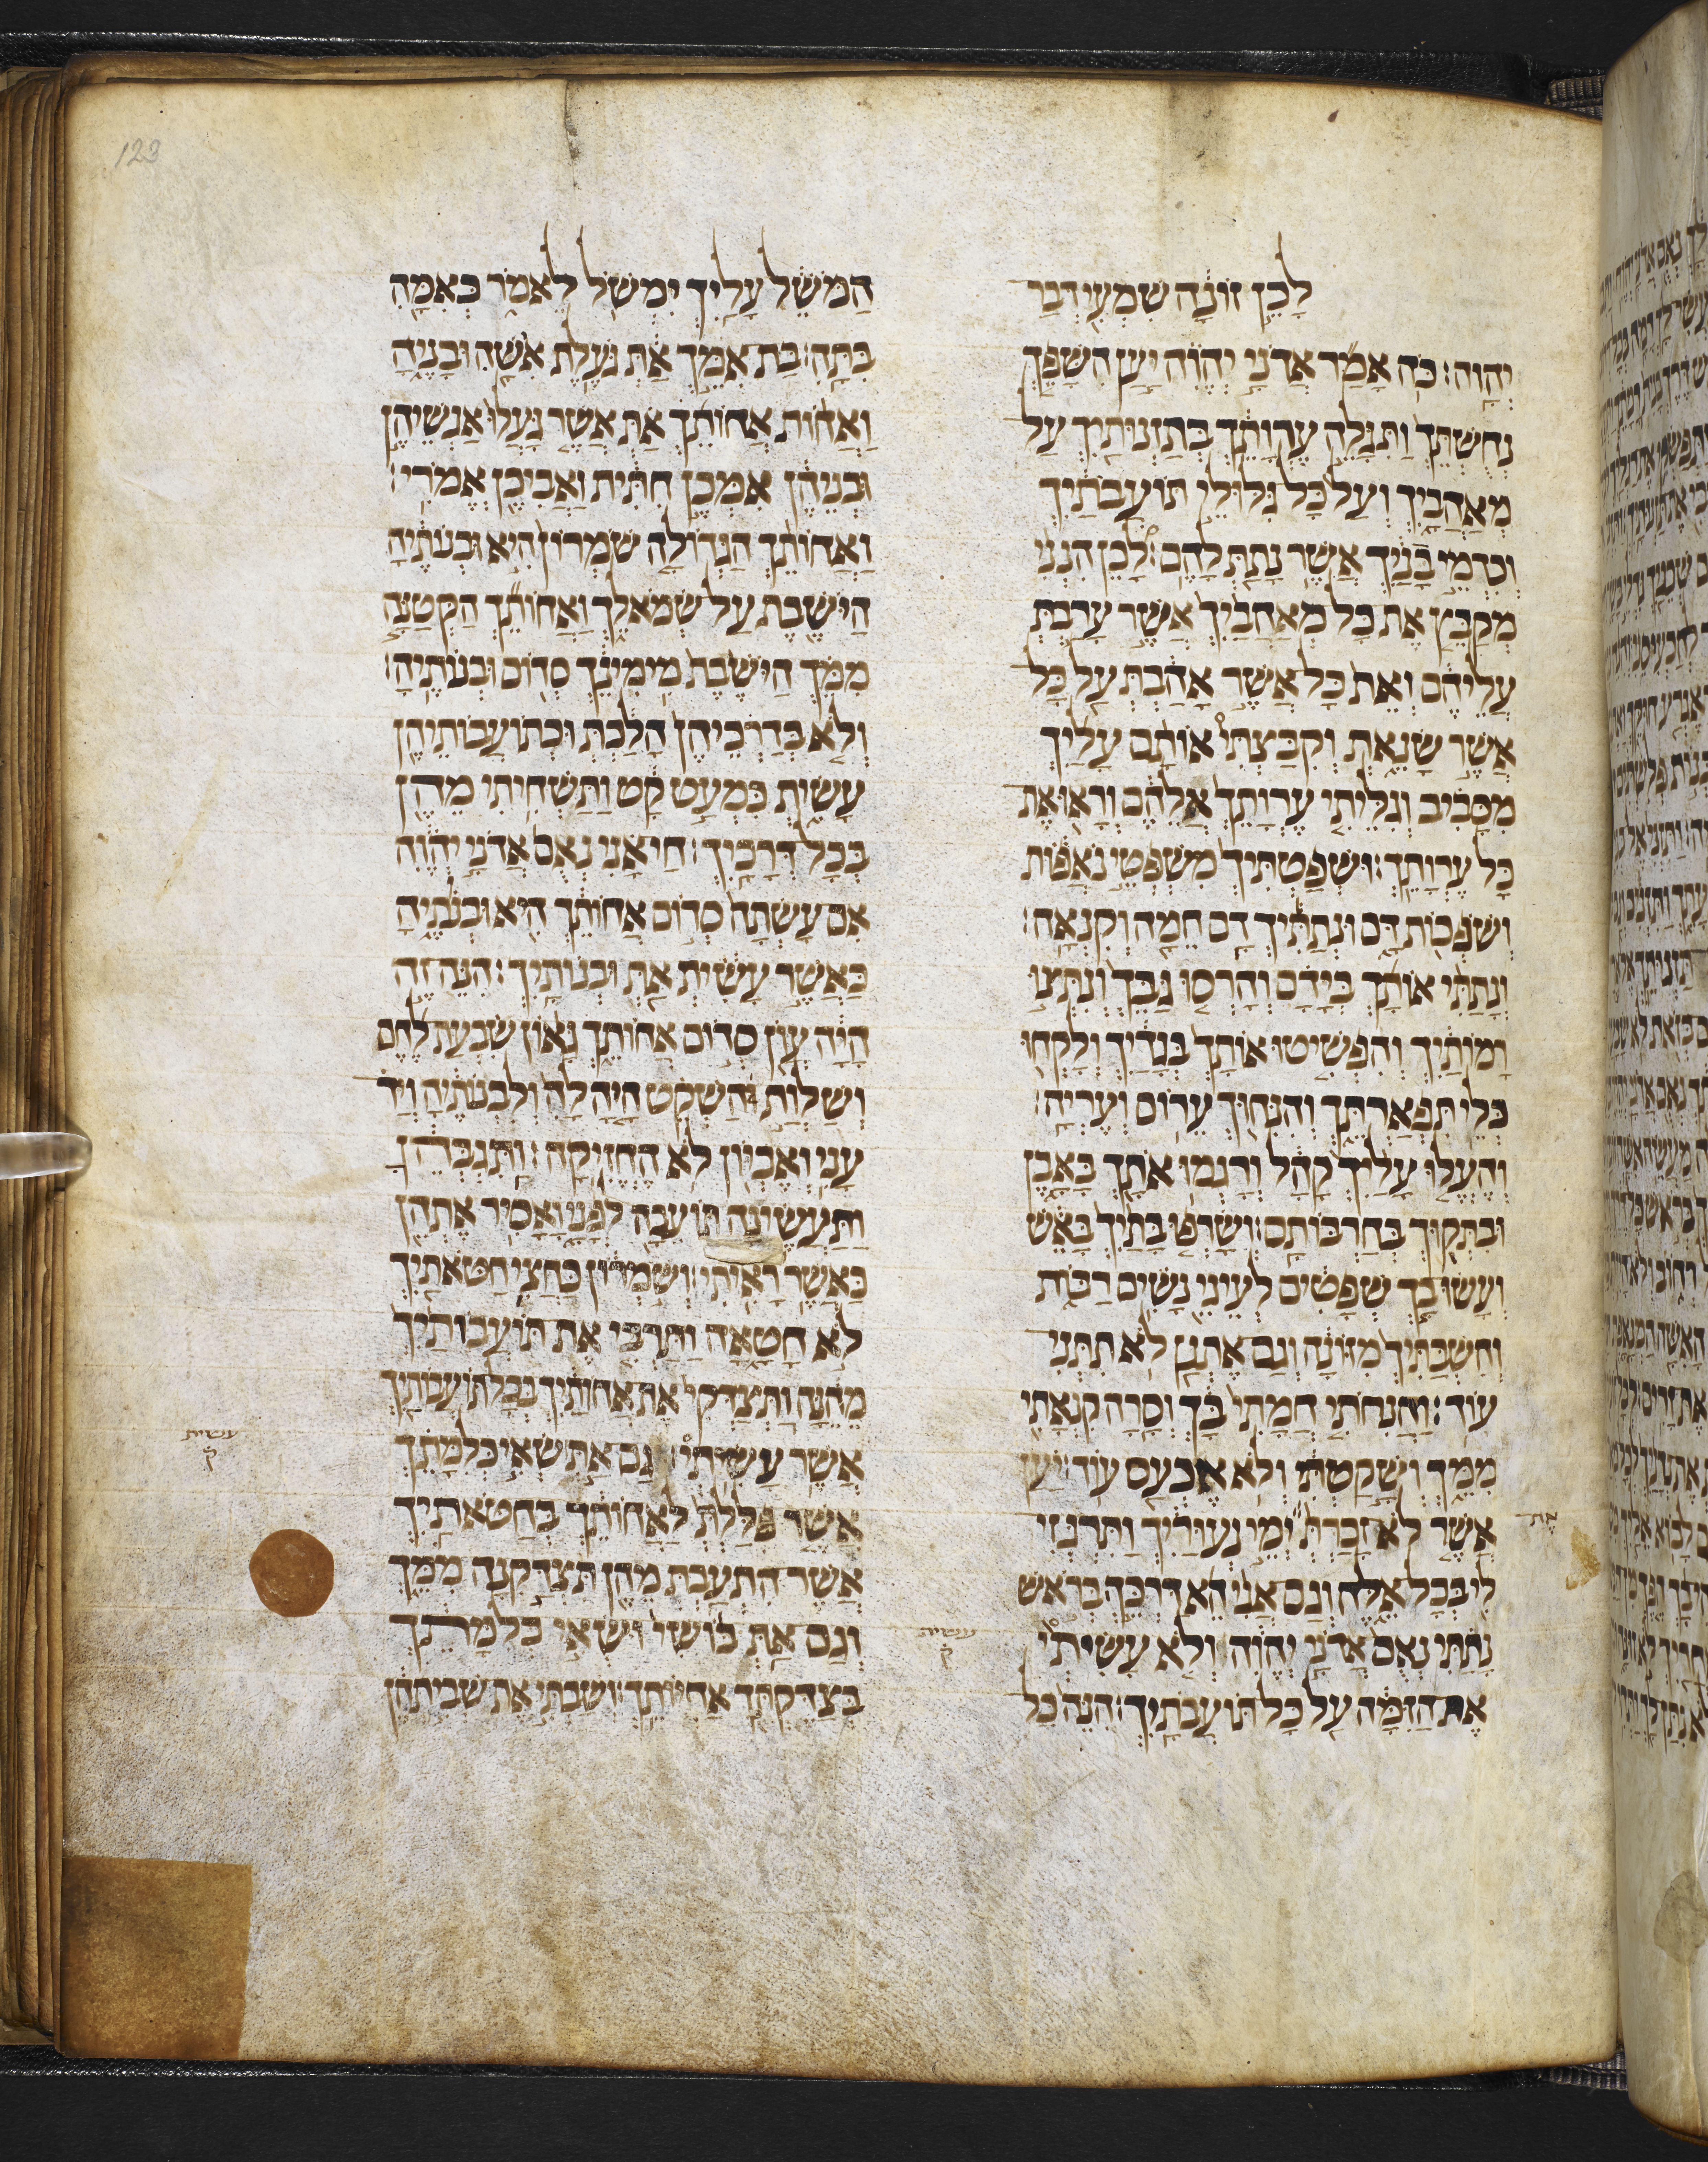 לָכֵן זוֹנָה שִׁמְעִי דְּבַר
יְהוָה: כֹּה אָמַר אֲדֹנָי יְהוִה יַעַן הִשָּׁפֵךְ
נְחֻשְׁתֵּךְ וַתִּגָּלֶה עֶרְוָתֵךְ בְּתַזְנוּתַיִךְ עַל
מְאַהֲבָיִךְ וְעַל כָּל גִּלּוּלֵי תוֹעֲבֹתַיִךְ
וְכִדְמֵי בָנַיִךְ אֲשֶׁר נָתַתְּ לָהֶם: לָכֵן הִנְנִי
מְקַבֵּץ אֶת כָּל מְאַהֲבַיִךְ אֲשֶׁר עָרַבְתְּ
עֲלֵיהֶם וְאֵת כָּל אֲשֶׁר אָהַבְתְּ עַל כָּל
אֲשֶׁר שָׂנֵאת וְקִבַּצְתִּי אוֹתָם עָלַיִךְ
מִסָּבִיב וְגִלֵּיתִי עֶרְוָתֵךְ אֲלֵהֶם וְרָאוּ אֶת
כָּל עֶרְוָתֵךְ: וּשְׁפַטְתִּיךְ מִשְׁפְּטֵי נֹאֲפוֹת
וְשֹׁפְכוֹת דָּם וּנְתַתִּיךְ דַּם חֵמָה וְקִנְאָה:
וְנָתַתִּי אוֹתָךְ בְּיָדָם וְהָרְסוּ גַבֵּךְ וְנִתְּצוּ
רָמֹתַיִךְ וְהִפְשִׁיטוּ אוֹתָךְ בְּגָדַיִךְ וְלָקְחוּ
כְּלֵי תִפְאַרְתֵּךְ וְהִנִּיחוּךְ עֵרוֹם וְעֶרְיָה:
וְהֶעֱלוּ עָלַיִךְ קָהָל וְרָגְמוּ אֹתָךְ בָּאָבֶן
וּבִתְּקוּךְ בְּחַרְבוֹתָם: וְשָׂרְפוּ בָתַּיִךְ בָּאֵשׁ
וְעָשׂוּ בָךְ שְׁפָטִים לְעֵינֵי נָשִׁים רַבּוֹת
וְהִשְׁבַּתִּיךְ מִזּוֹנָה וְגַם אֶתְנַן לֹא תִתְּנִי
עוֹד: וַהֲנִחֹתִי חֲמָתִי בָּךְ וְסָרָה קִנְאָתִי
מִמֵּךְ וְשָׁקַטְתִּי וְלֹא אֶכְעַס עוֹד: יַעַן
אֲשֶׁר לֹא זָכַרְתְּ יְמֵי נְעוּרַיִךְ וַתִּרְגְּזִי
את
לִי בְּכָל אֵלֶּה וְגַם אֲנִי הֵא דַּרְכֵּךְ בְּרֹאשׁ
נָתַתִּי נְאֻם אֲדֹנָי יְהוִה וְלֹא עָשִׂיתִי
עשית
ק
אֶת הַזִּמָּה עַל כָּל תּוֹעֲבֹתָיִךְ: הִנֵּה כָּל
הַמֹּשֵׁל עָלַיִךְ יִמְשֹׁל לֵאמֹר כְּאִמָּה
בִּתָּהּ: בַּת אִמֵּךְ אַתְּ גֹּעֶלֶת אִישָׁהּ וּבָנֶיהָ
וַאֲחוֹת אֲחוֹתֵךְ אַתְּ אֲשֶׁר גָּעֲלוּ אַנְשֵׁיהֶן
וּבְנֵיהֶן אִמְּכֶן חִתִּית וַאֲבִיכֶן אֱמֹרִי:
וַאֲחוֹתֵךְ הַגְּדוֹלָה שֹׁמְרוֹן הִיא וּבְנֹתֶיהָ
הַיּוֹשֶׁבֶת עַל שְׂמֹאלֵךְ וַאֲחוֹתֵךְ הַקְּטַנָּה
מִמֵּךְ הַיּוֹשֶׁבֶת מִימִינֵךְ סְדוֹם וּבְנֹתֶיהָ:
וְלֹא בְדַרְכֵיהֶן הָלַכְתְּ וּכְתוֹעֲבוֹתֵיהֶן
עָשִׂית כִּמְעַט קָט וַתַּשְׁחִיתִי מֵהֵן
בְּכָל דְּרָכָיִךְ: חַי אָנִי נְאֻם אֲדֹנָי יְהוִה
אִם עָשְׂתָה סְדוֹם אֲחוֹתֵךְ הִיא וּבְנֹתֶיהָ
כַּאֲשֶׁר עָשִׂית אַתְּ וּבְנוֹתָיִךְ: הִנֵּה זֶה
הָיָה עֲוֹן סְדוֹם אֲחוֹתֵךְ גָּאוֹן שִׂבְעַת לֶחֶם
וְשַׁלְוַת הַשְׁקֵט הָיָה לָהּ וְלִבְנוֹתֶיהָ וְיַד
עָנִי וְאֶבְיוֹן לֹא הֶחֱזִיקָה: וַתִּגְבְּהֶינָ
וַתַּעֲשֶׂינָה תוֹעֵבָה לְפָנָי וָאָסִיר אֶתְהֶן
כַּאֲשֶׁר רָאִיתִי: וְשֹׁמְרוֹן כַּחֲצִי חַטֹּאתַיִךְ
לֹא חָטָאָה וַתַּרְבִּי אֶת תּוֹעֲבוֹתַיִךְ
מֵהֵנָּה וַתְּצַדְּקִי אֶת אֲחוֹתַיִךְ בְּכָל תּוֹעֲבֹתַיִךְ
אֲשֶׁר עָשִׂיתִי: גַּם אַתְּ שְׂאִי כְלִמָּתֵךְ
עשית
ק
אֲשֶׁר פִּלַּלְתְּ לַאֲחוֹתֵךְ בְּחַטֹּאתַיִךְ
אֲשֶׁר הִתְעַבְתְּ מֵהֵן תִּצְדַּקְנָה מִמֵּךְ
וְגַם אַתְּ בּוֹשִׁי וּשְׂאִי כְלִמָּתֵךְ
בְּצַדֶּקְתֵּךְ אַחְיוֹתֵךְ: וְשַׁבְתִּי אֶת שְׁבִיתְהֶן
123